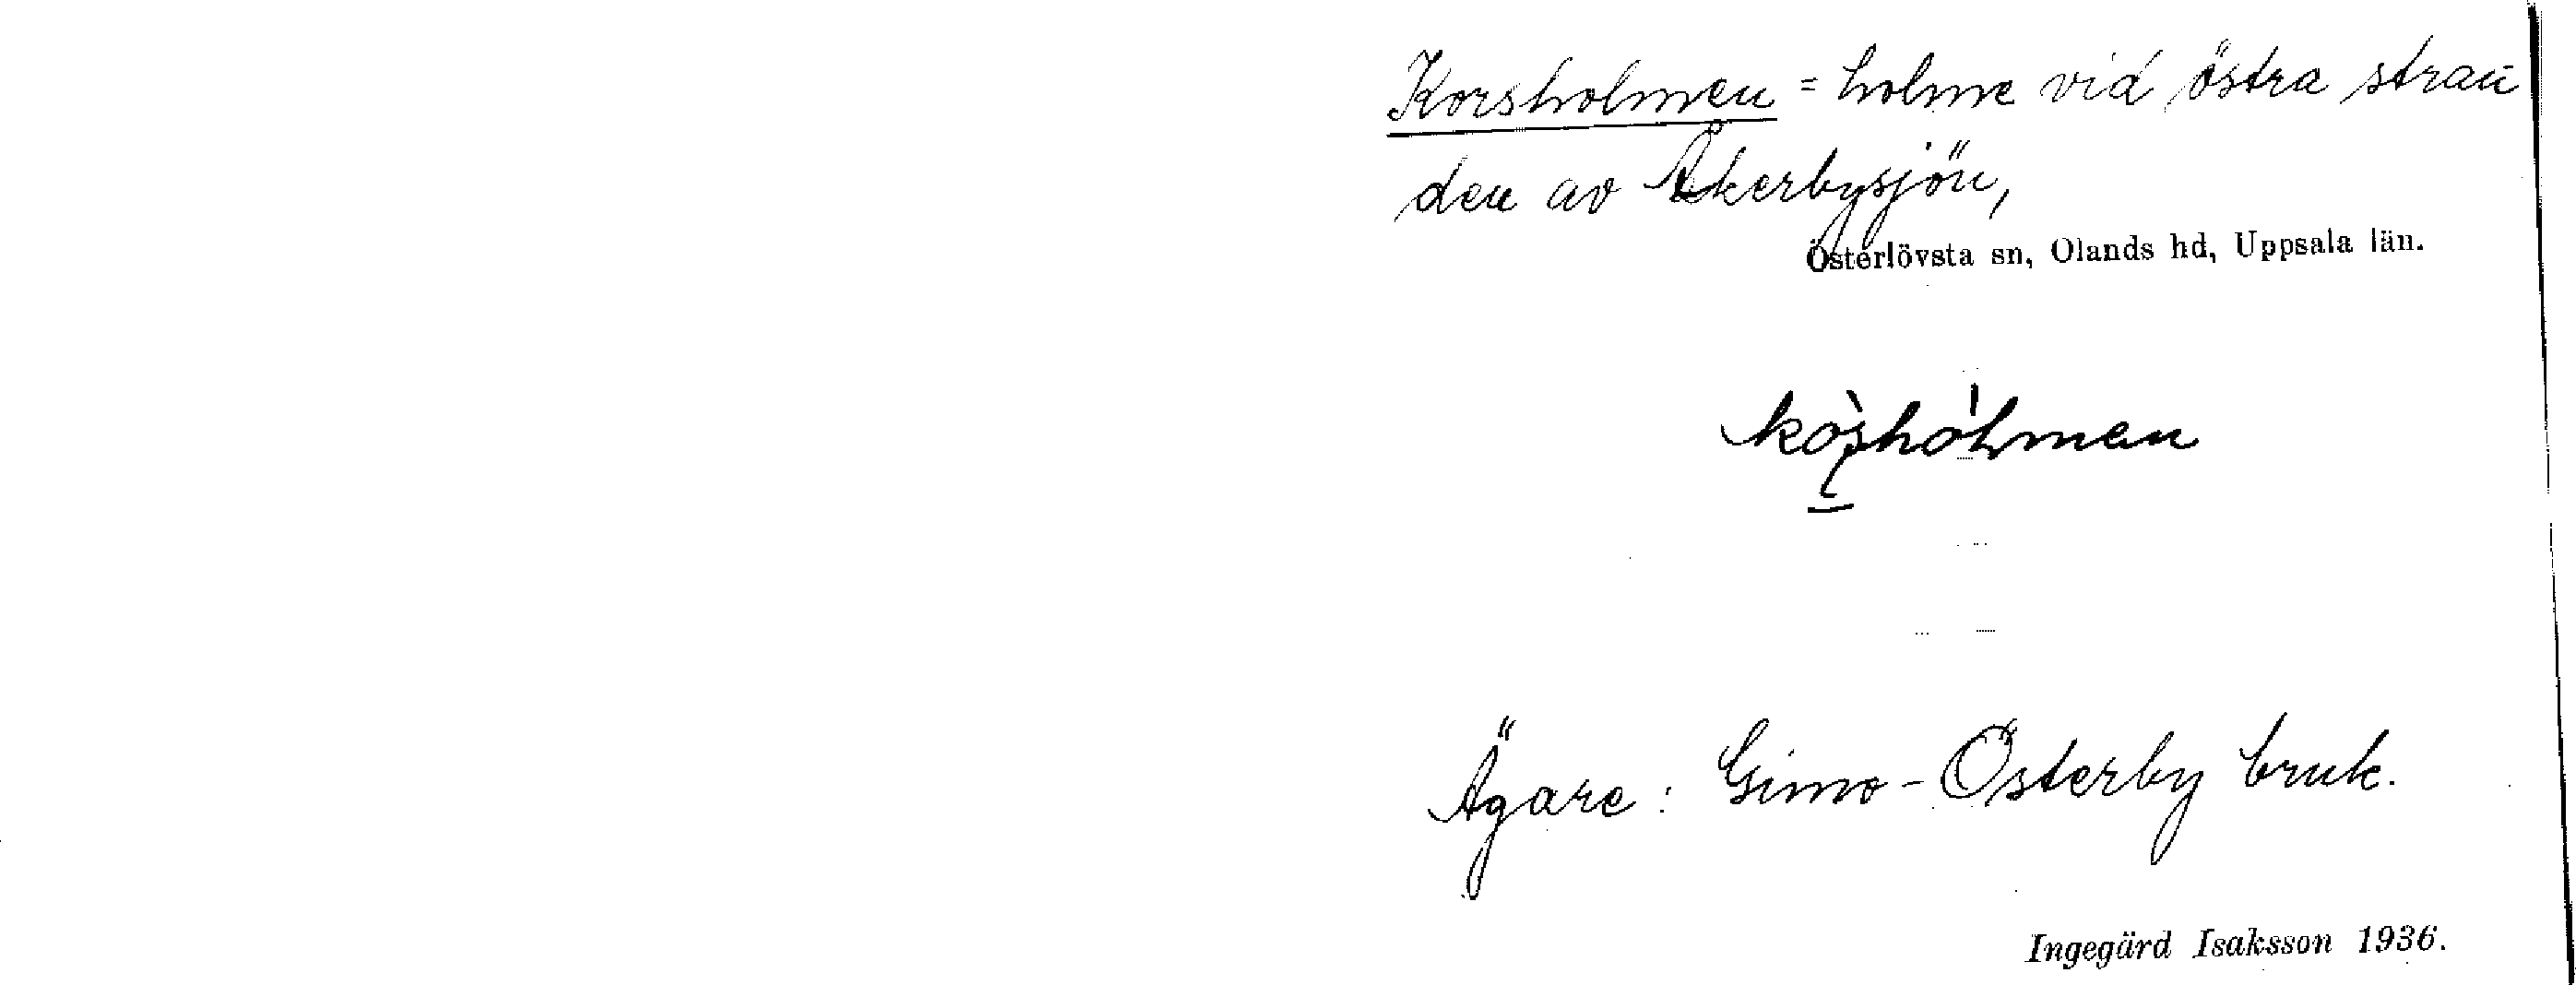 Korsholmen = holme vid östra stran
den av Åkerbysjön,
Österlövsta sn, Olands hd, Uppsala län.
Ägare: Gimo-Österby bruk.
Ingegärd Isaksson 1936.